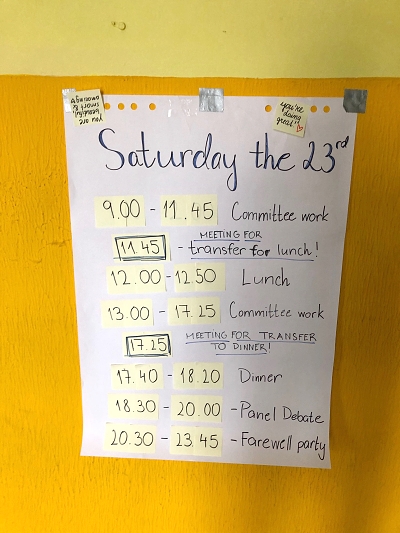 You are
beautiful,
smart &
amazing
you're
doing
great!
Saturday the 23rd
9.00 - 11.45 Committee work
11.45 - MEETING FOR
transfer for lunch!
12.00 - 12.50 Lunch
13.00 - 17.25 Committee work
17.25 MEETING FOR TRANSFER
TO DINNER!
17.40 - 18.20 Dinner
18.30 - 20.00 - Panel Debate
20.30 - 23.45 - Farewell party